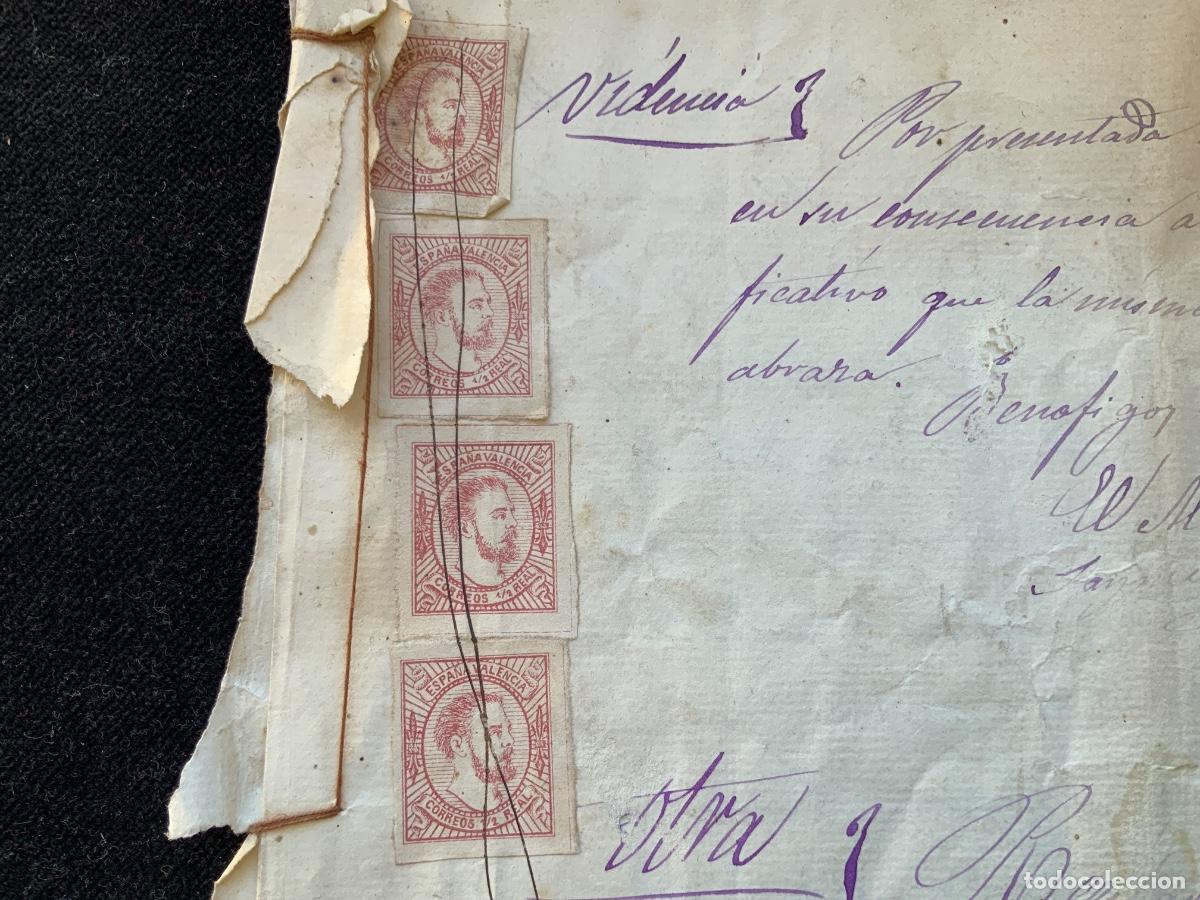 ESPAÑA VALENCIA
CORREOS 1/2 REAL
ESPAÑA VALENCIA
CORREOS 1/2 REAL
ESPAÑA VALENCIA
CORREOS 1/2 REAL
ESPAÑA VALENCIA
CORREOS 1/2 REAL
videncia
Por presentada
en su consecuencia a
ficativo que la mism
abraza. Benafigos
El
Otra
todocoleccion